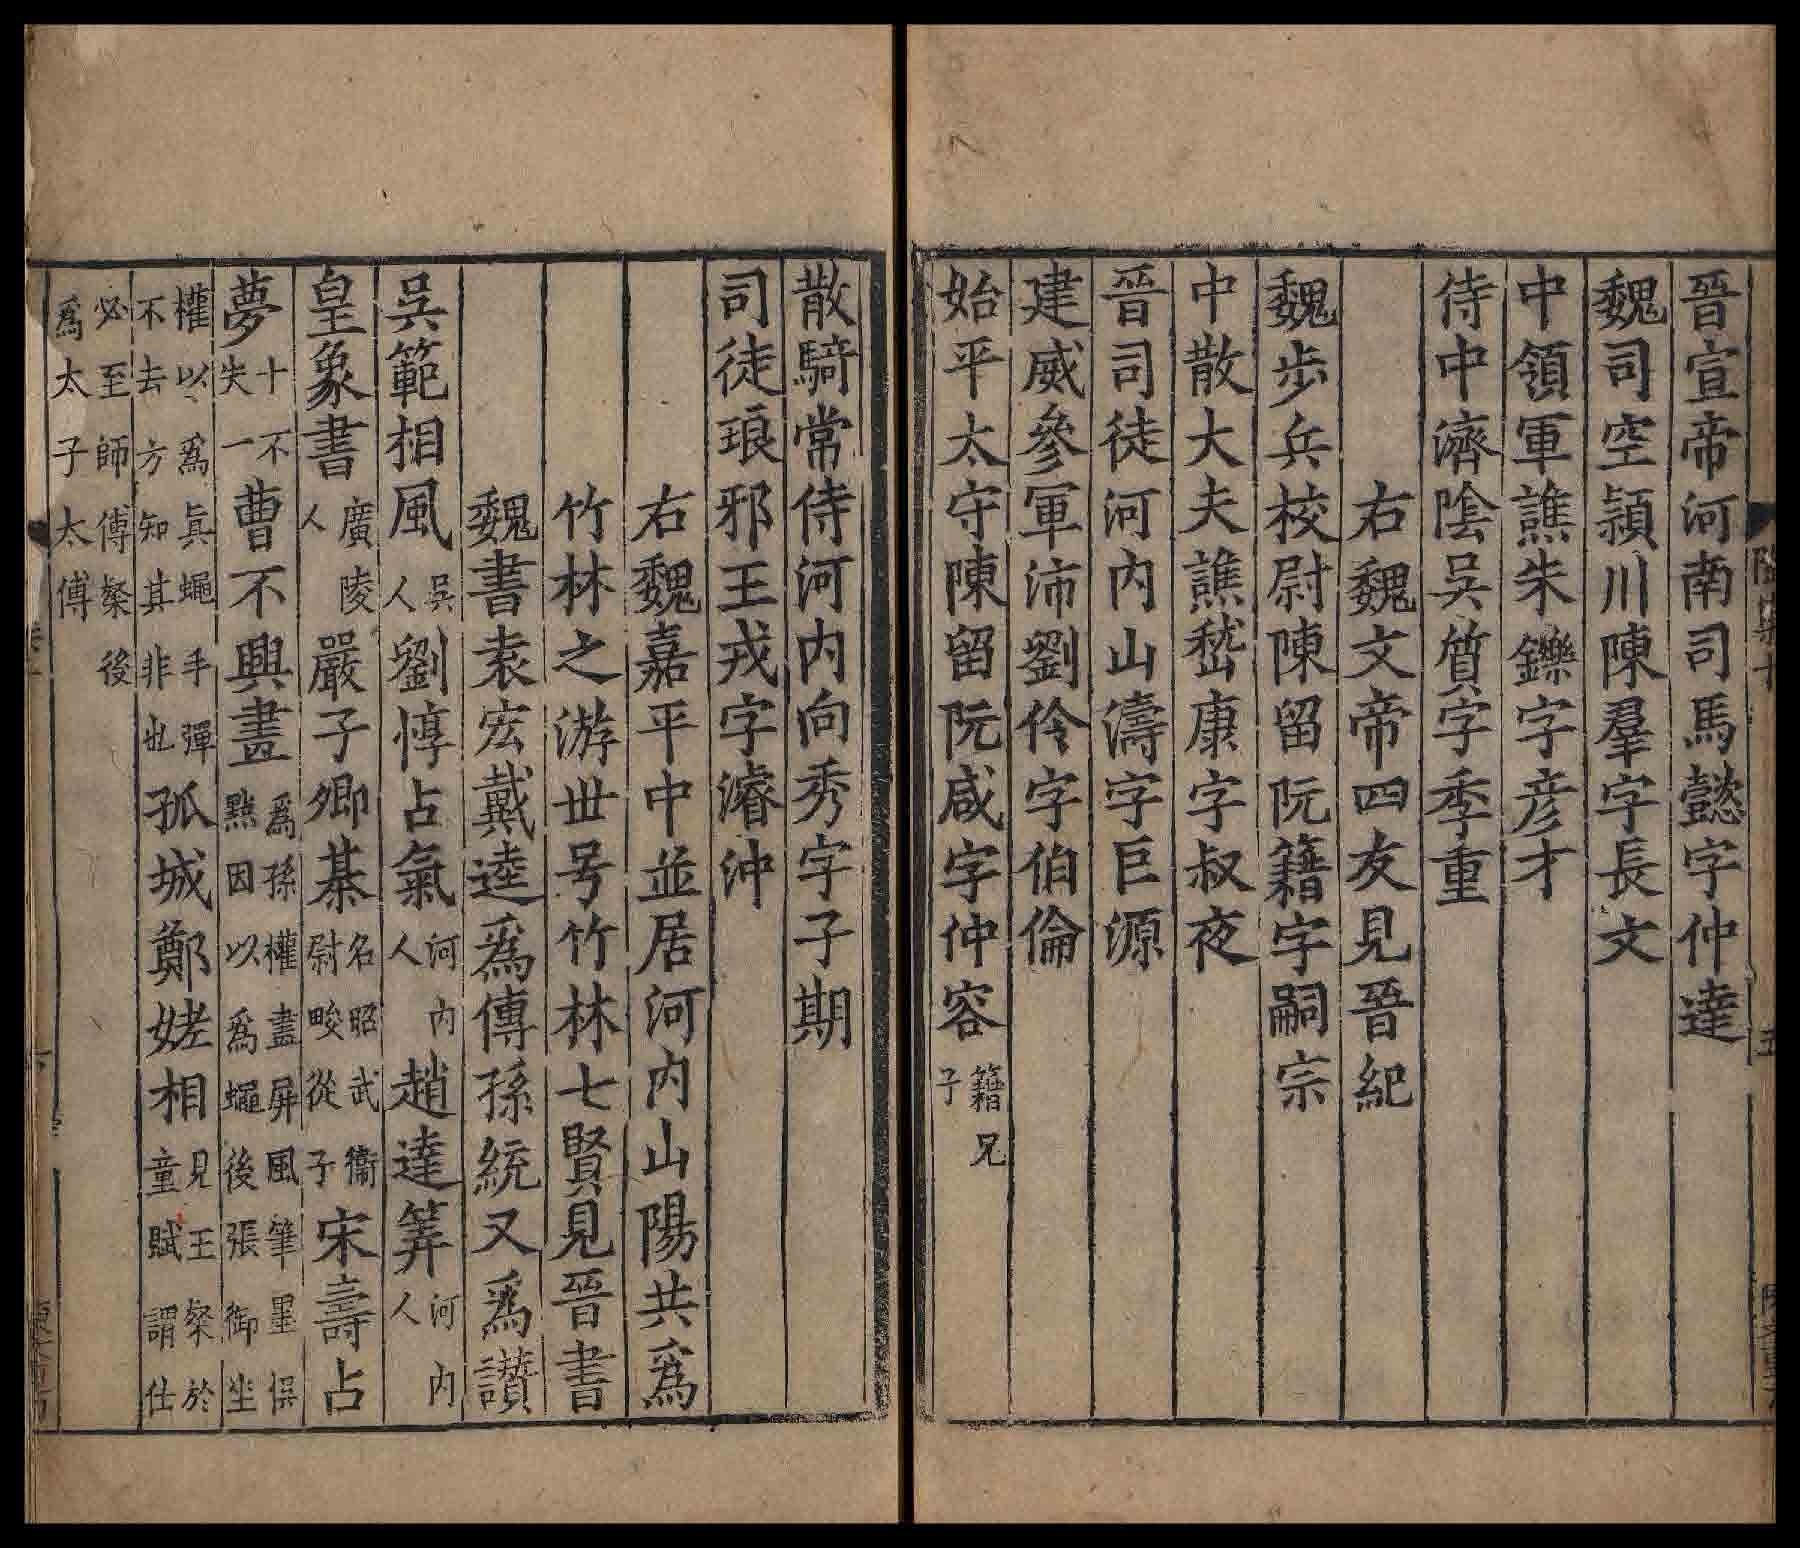 晉宣帝河南司馬懿字仲達
魏司空潁川陳羣字長文
中領軍譙朱鑠字彥才
侍中濟陰吳質字季重
右魏文帝四友見晉紀
魏步兵校尉陳留阮籍字嗣宗
中散大夫譙嵇康字叔夜
晉司徒河內山濤字巨源
建威參軍沛劉伶字伯倫
始平太守陳留阮咸字仲容籍兄子
散騎常侍河內向秀字子期
司徒琅邪王戎字濬沖
右魏嘉平中並居河內山陽共爲
竹林之游世号竹林七賢見晉書
魏書袁宏戴逵爲傳孫統又爲讚
吳範相風吳人劉惇占氣河內人趙達筭河內人
皇象書廣陵人嚴子卿棊名昭武衞尉畯從子宋壽占
夢十不失一曹不興畫爲孫權畫屏風筆墨悮點因以爲蠅後張御坐
權以爲眞蠅手彈不去方知其非也孤城鄭姥相見王粲於童賦謂仕
必至師傅粲後爲太子太傅